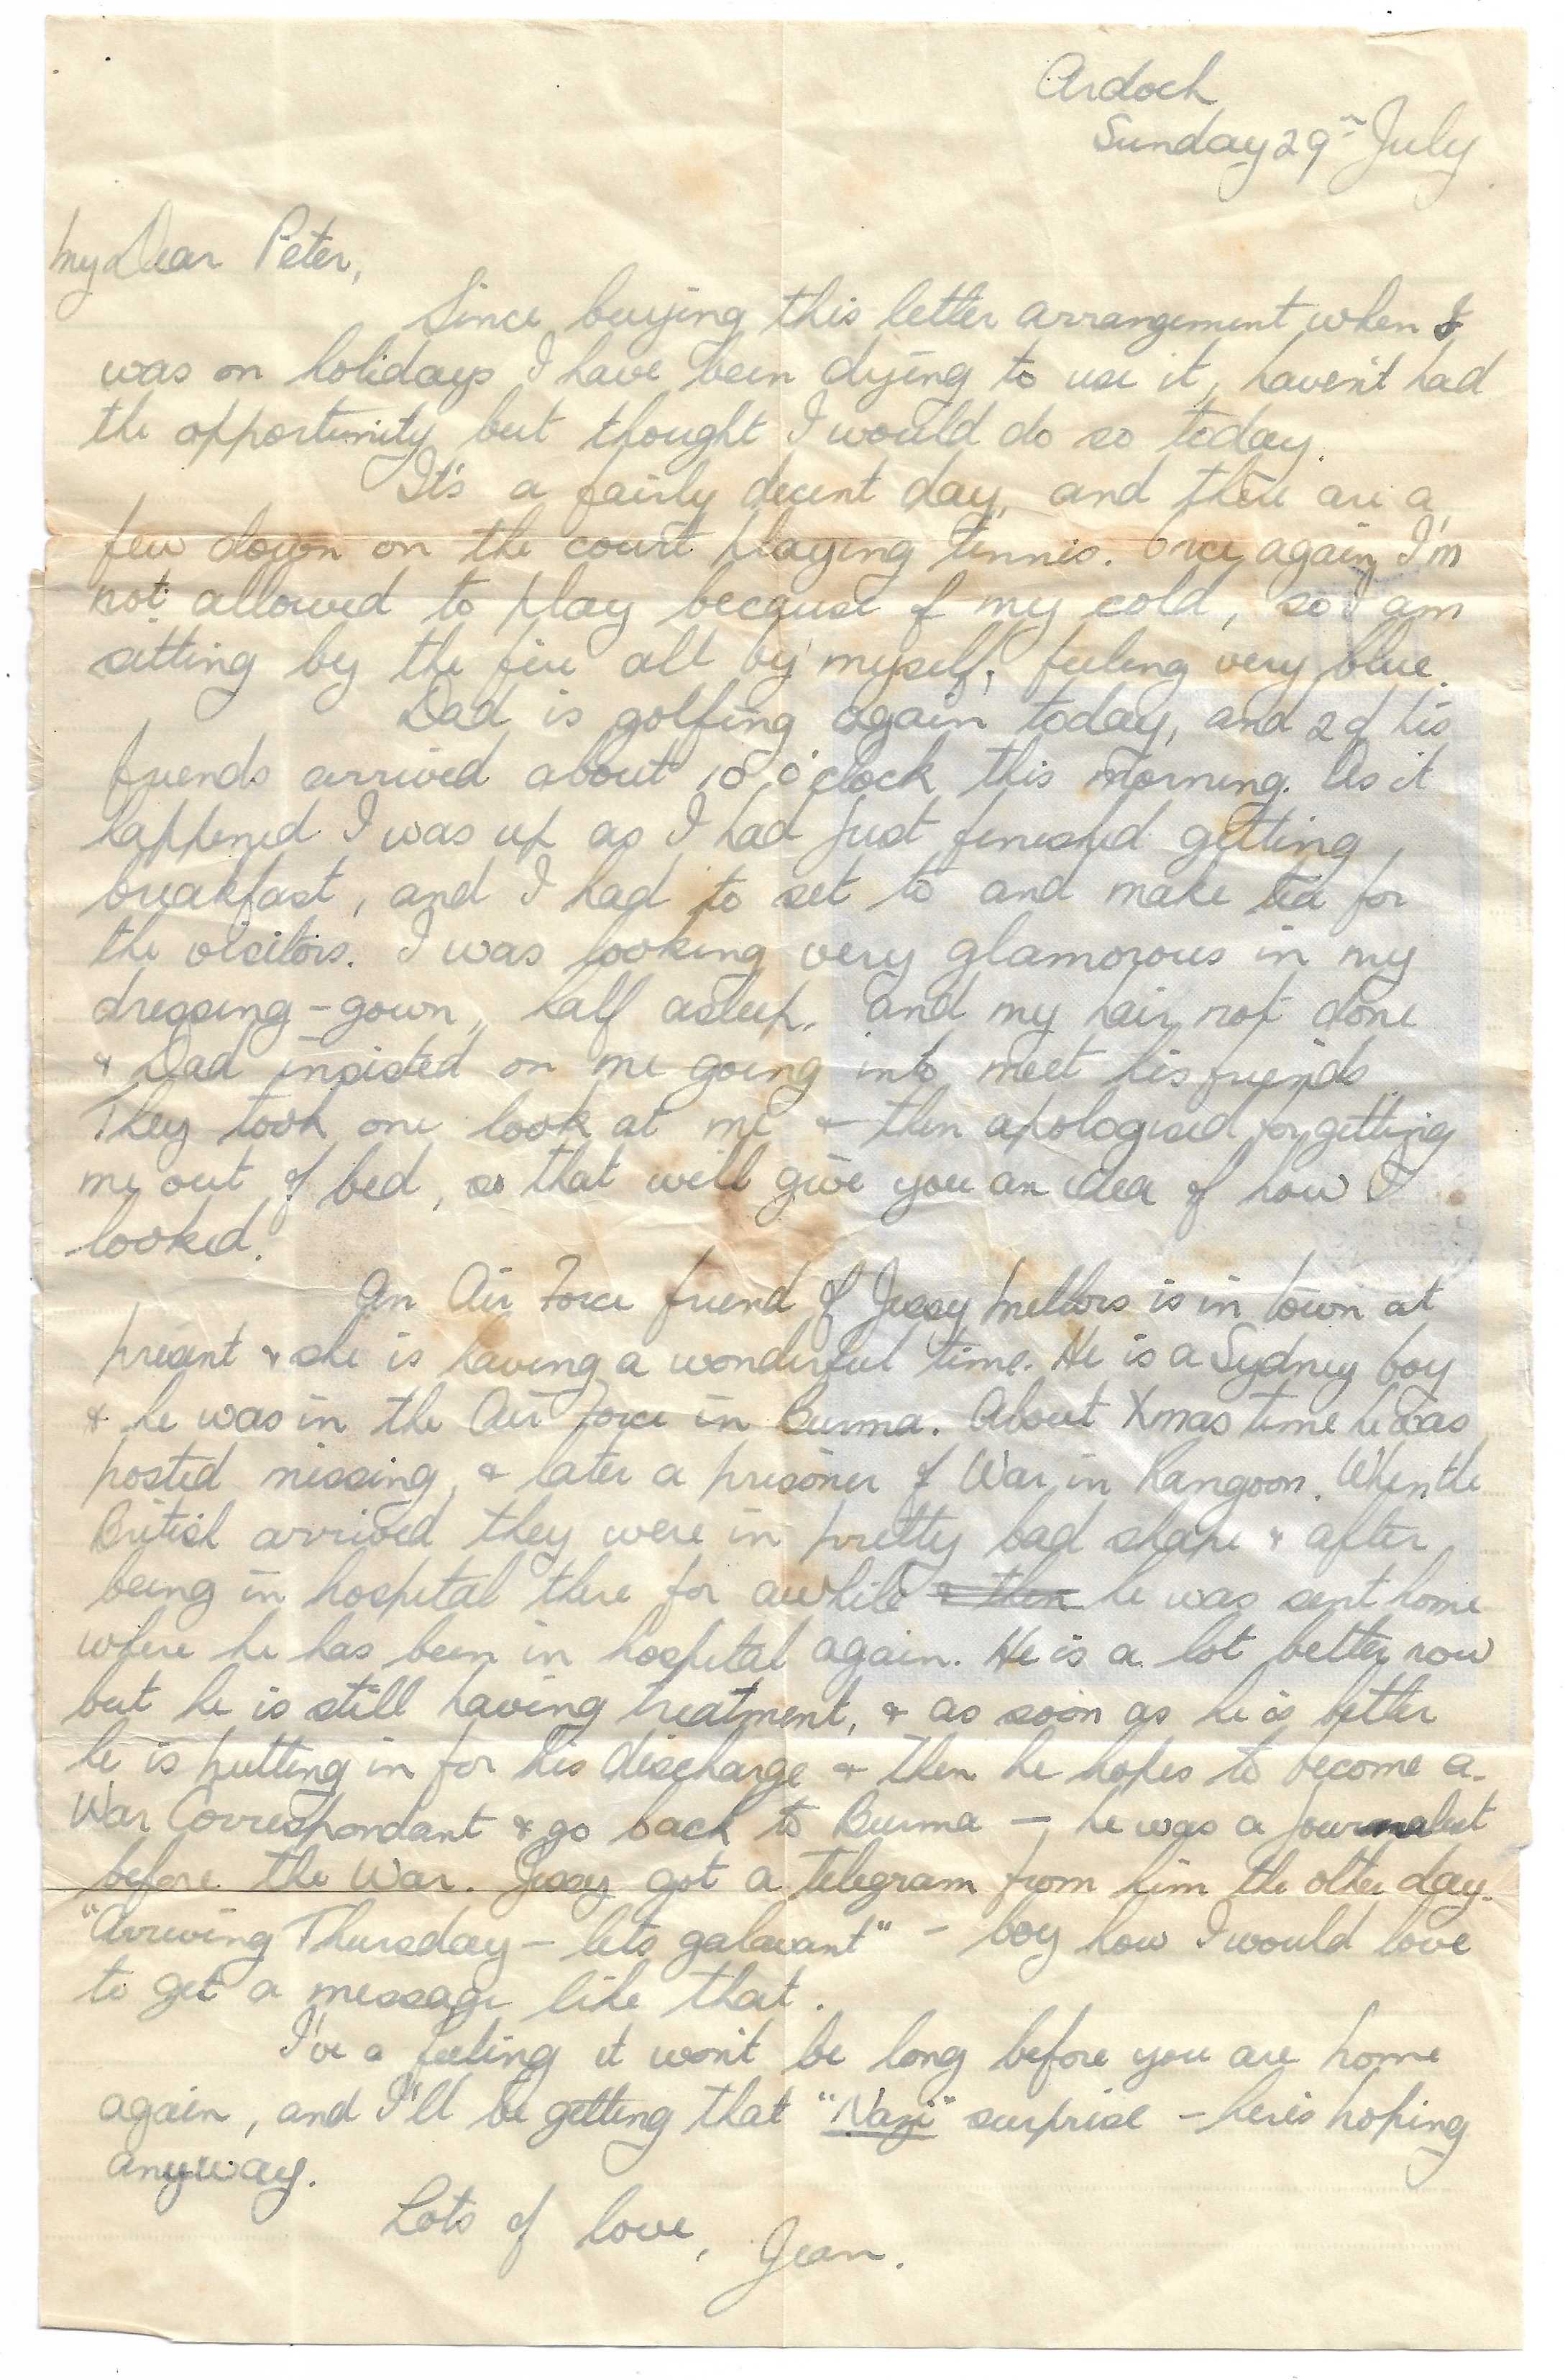 Ardoch
Sunday 29th July
My Dear Peter,
Since buying this letter arrangement when I
was on holidays I have been dying to use it, haven't had
the opportunity but thought I would do so today.
It's a fairly decent day, and there are a
few down on the court playing tennis. Once again I'm
not allowed to play because of my cold, so I am
sitting by the fire all by myself, feeling very blue.
Dad is golfing again today, and 2 of his
friends arrived about 10 o'clock this morning. As it
happened I was up as I had just finished getting
breakfast, and I had to set to and make tea for
the visitors. I was looking very glamorous in my
dressing-gown, half asleep, and my hair not done
& Dad insisted on me going into meet his friends.
They took one look at me & then apologised for getting
me out of bed, so that will give you an idea of how I
looked.
An Air Force friend of Jessy Mellors is in town at
present & she is having a wonderful time. He is a Sydney boy
& he was in the Air Force in Burma. About Xmas time he was
posted missing, & later a prisoner of War in Rangoon. When the
British arrived they were in pretty bad shape & after
being in hospital there for awhile & then he was sent home
where he has been in hospital again. He is a lot better now
but he is still having treatment, & as soon as he is better
he is putting in for his discharge & then he hopes to become a
War Correspondant & go back to Burma – he was a journalist
before the War. Jessy got a telegram from him the other day.
"Arriving Thursday – lets galavant" – boy how I would love
to get a message like that.
I've a feeling it won't be long before you are home
again, and I'll be getting that "Nazi" surprise – here's hoping
anyway.
Lots of love,
Jean.